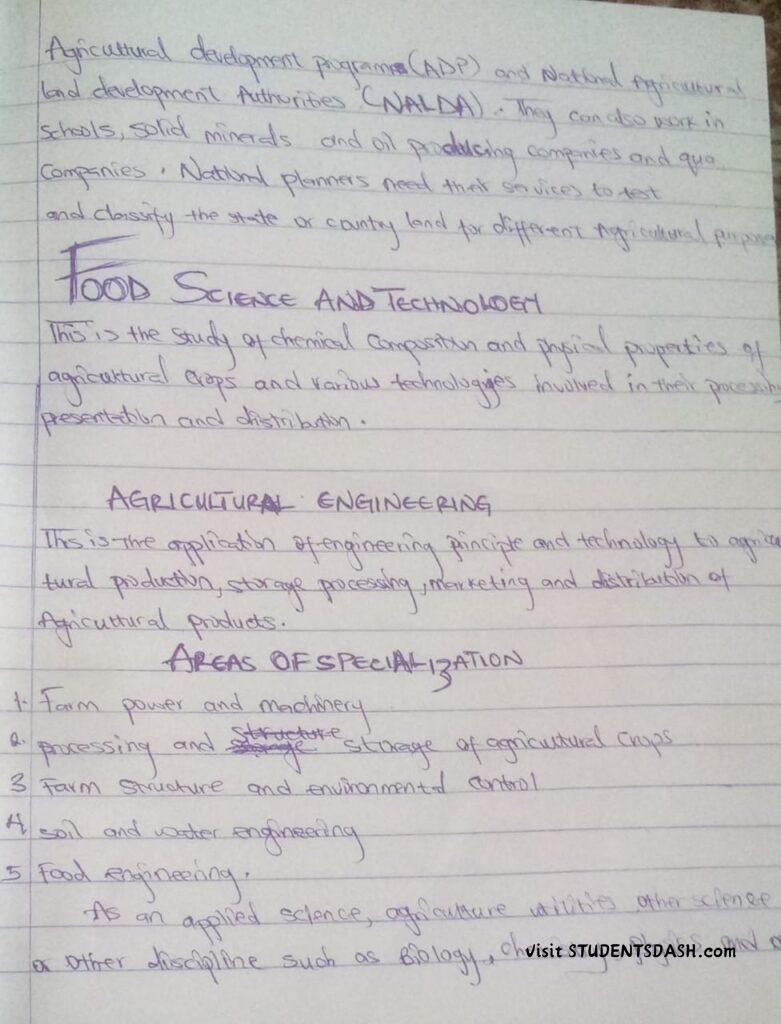 Agricultural development programs (ADP) and National Agricultural
land development Authorities (NALDA). They can also work in
schools, solid minerals and oil producing companies and qua
Companies. National planners need their services to test
and classify the state or country land for different Agricultural purpose
FOOD SCIENCE AND TECHNOLOGY
This is the study of chemical composition and physical properties of
agricultural crops and various technologies involved in their
presentation and distribution.
AGRICULTURAL ENGINEERING
This is the application of engineering principle and technology to agricu
tural production, storage processing, marketing and distribution of
Agricultural products.
AREAS OF SPECIALIZATION
1. Farm power and machinery
2. processing and structure storage of agricultural crops
3 Farm structure and environmental control
4 soil and water engineering
5 Food engineering.
As an applied science, agriculture utilities other science
or other discipline such as Biology, and
Visit STUDENTSDASH.com